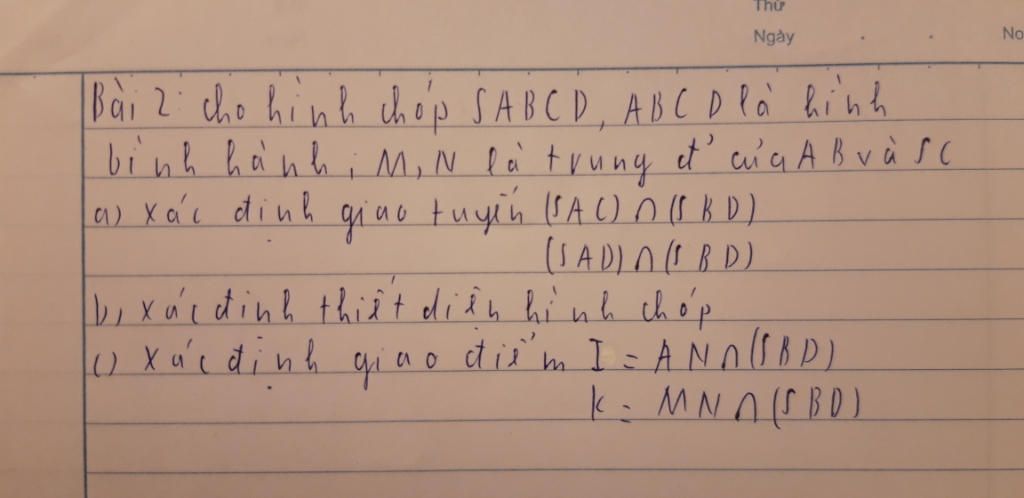 Thứ
Ngày . . No
Bài 2: cho hình chóp SABCD, ABCD là hình
bình hành; M, N là trung đ' của AB và SC
a) xác định giao tuyến (SAC) ∩ (SBD)
(SAD) ∩ (SBD)
b, xác định thiết diện hình chóp
c) xác định giao điểm I = AN ∩ (SBD)
K = MN ∩ (SBD)